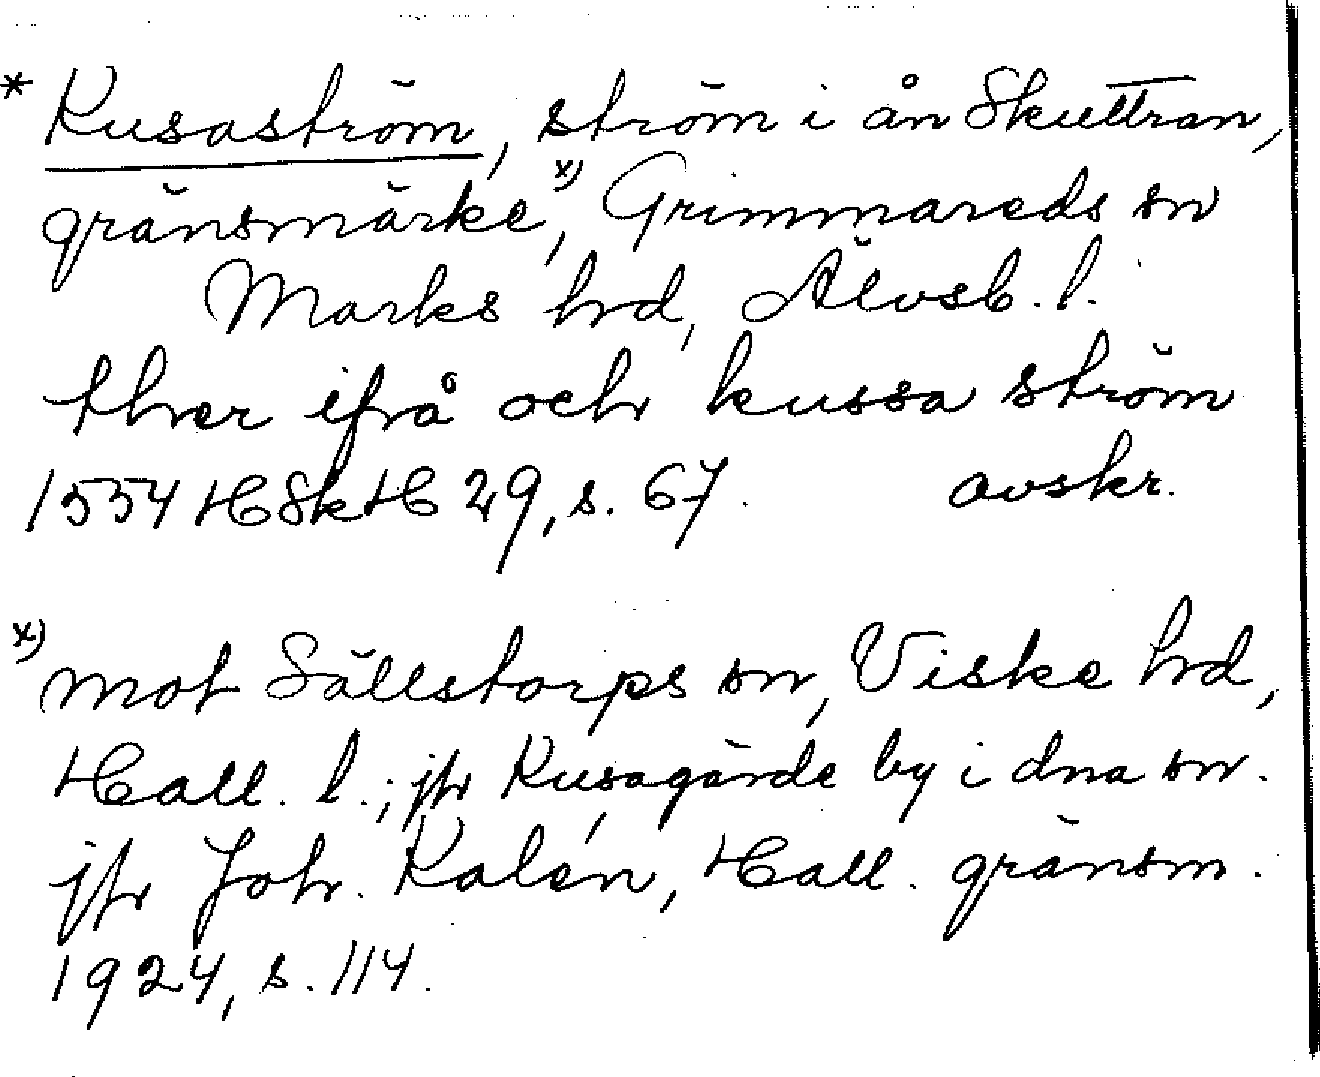 * Kusaström, ström i ån Skuttran,
gränsmärke,x) Grimmareds sn
Marks hd, Älvsb. l.
thver ifrå och kussa ström
1554 HSkH 29, s. 67. avskr.
x) mot Sällstorps sn, Viske hd,
Hall. l.; jfr Kusagärde by i dna sn.
jfr Joh. Kalén, Hall. gränsm.
1924, s. 114.